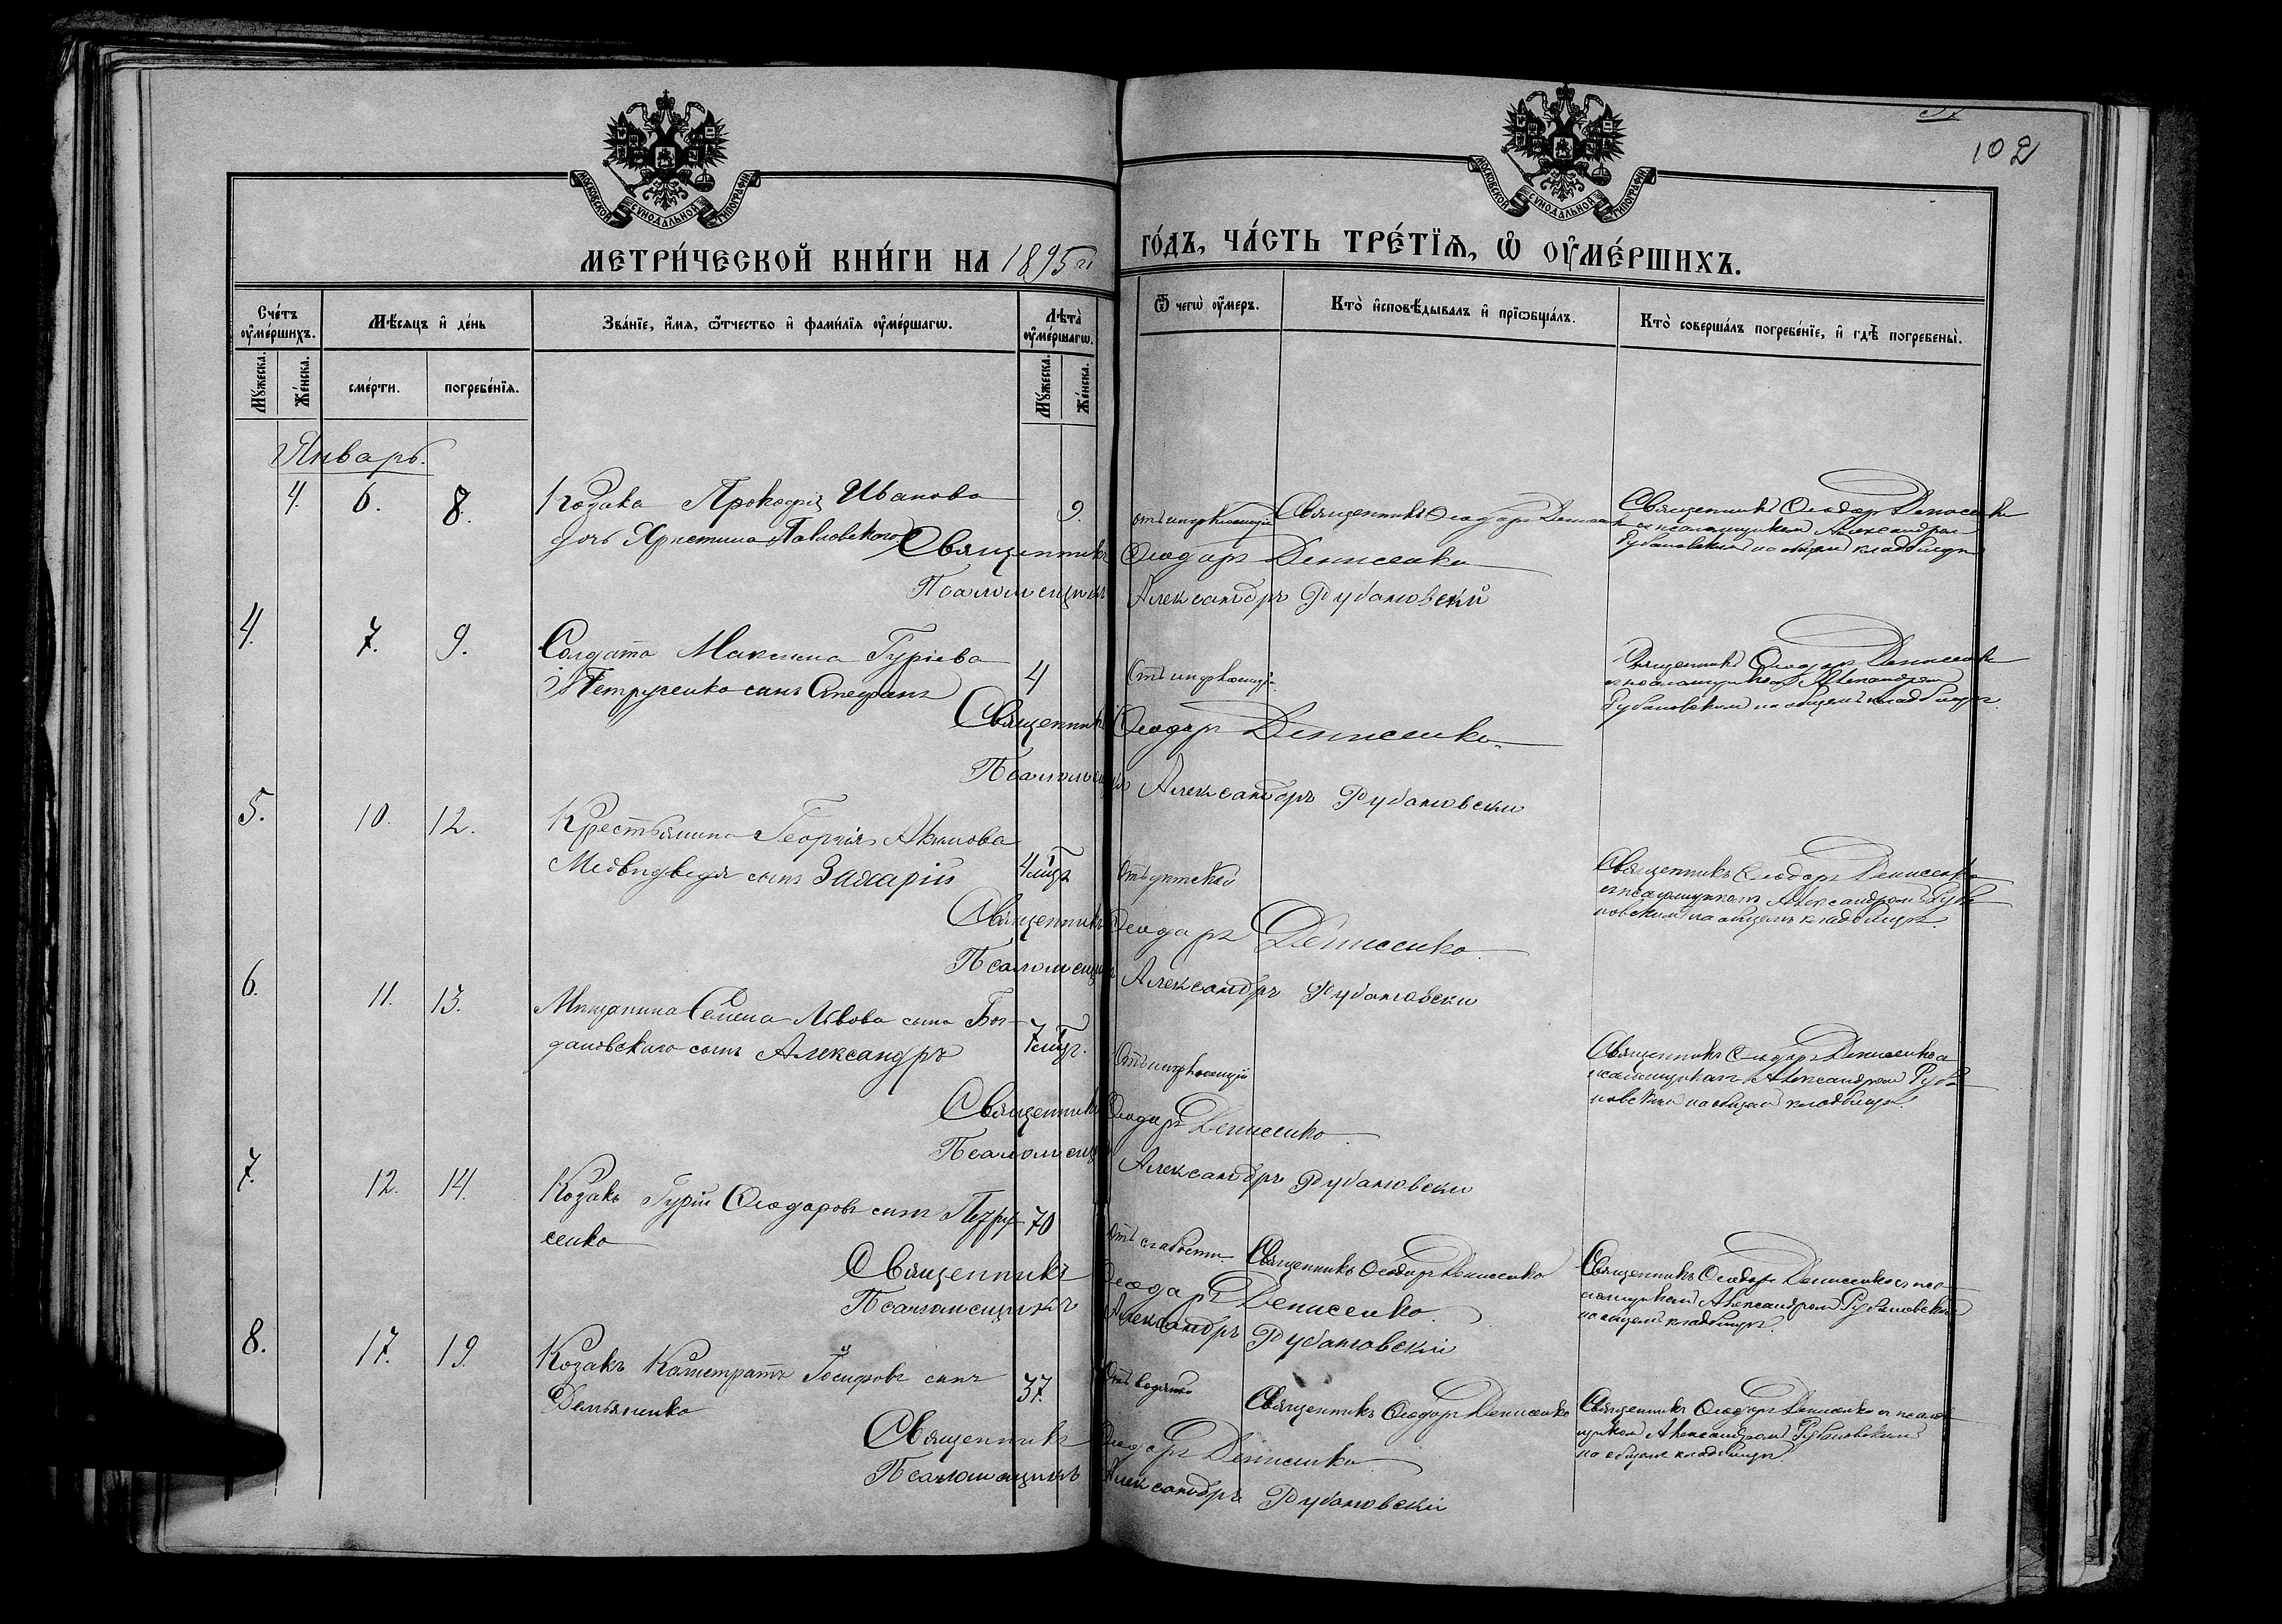 102
МОСКОВСКОЙ СѴНОДАЛЬНОЙ ТИПОГРАФІИ
МОСКОВСКОЙ СѴНОДАЛЬНОЙ ТИПОГРАФІИ
МЕТРИ́ЧЕСКОЙ КНИ́ГИ НА 1895 й
ГО́ДЪ, ЧА́СТЬ ТРЕ́ТЇѦ, Ѡ҆ ОУ҆МЕ́РШИХЪ.
Сче́тъ оу҆ме́ршихъ.
Мѣ́сяцъ и҆ де́нь
Зва́нїе, и҆́мѧ, ѻ҆́тчество и҆ фами́лїѧ оу҆ме́ршагѡ.
Лѣта̀ оу҆ме́ршагѡ.
Ѿ чегѡ̀ оу҆́меръ.
Кто̀ и҆сповѣ́дывалъ и҆ прїѡбща́лъ.
Кто̀ соверша́лъ погребе́нїе, и҆ гдѣ̀ погребены̀.
Мꙋ́жеска.
Же́нска.
сме́рти.
погребе́нїѧ.
Мꙋ́жеска.
Же́нска.
Январь.
4. 6. 8. Козака Прокофія Иванова 9.
дочь Христина Павловского
Священникъ Ѳеодоръ Денисенко
Священникъ Ѳеодоръ Денисенко
съ псаломщикомъ Александром
Рубановским на общем кладбищѣ
Священникъ Ѳеодоръ Денисенко
Псаломщикъ Александръ Рубановскій
4. 7. 9. Солдата Максима Гуріева 4
Петрусенко сынъ Стефанъ
Священникъ Ѳеодоръ Денисенко
съ псаломщикомъ Александром
Рубановским на общемъ кладбищѣ.
Священникъ Ѳеодоръ Денисенко
Псаломщикъ Александръ Рубановски
5. 10. 12. Крестьянина Георгія Акимова
Медвидведя сынъ Захарій 4 мѣц
Священникъ Ѳеодоръ Денисенко
съ псаломщикомъ Александром Руба
новским на общемъ кладбищѣ.
Священникъ Ѳеодоръ Денисенко
Псаломщикъ Александръ Рубановски
6. 11. 13. Мищанина Семена Львова сына Бог-
дановского сынъ Александръ 7 мѣц.
Священникъ Ѳеодоръ Денисенко с
псаломщикомъ Александром Руба
новским на общем кладбищѣ.
Священникъ Ѳеодоръ Денисенко
Псаломщикъ Александръ Рубановски
7. 12. 14. Козакъ Гурій Ѳеодоровъ сынъ Петру- 70
сенко
Отъ слабости Священникъ Ѳеодоръ Денисенко
Священникъ Ѳеодоръ Денисенко с пса
ломщиком Александром Рубановским
на общем кладбищѣ.
Священникъ Ѳеодоръ Денисенко
Псаломщикъ Александръ Рубановскій
8. 17. 19. Козакъ Калистратъ Іосифовъ сынъ 37.
Демьяненко
Отъ водянки Священникъ Ѳеодоръ Денисенко
Священникъ Ѳеодоръ Денисенко с псалом
щиком Александром Рубановским
на общем кладбищѣ
Священникъ Ѳеодоръ Денисенко
Псаломщикъ Александръ Рубановскій